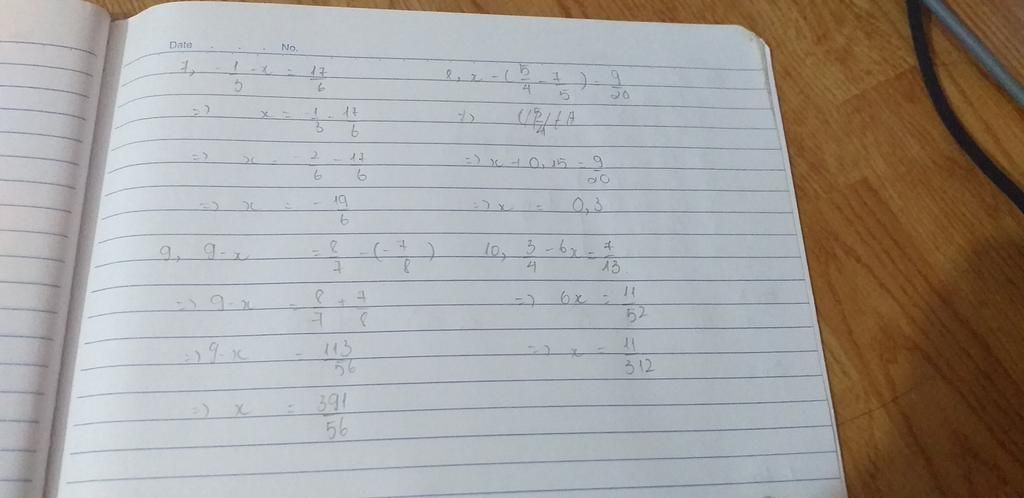 Date . . . No.
7, -1/3 - x = 17/6
=> x = -1/3 - 17/6
=> x = -2/6 - 17/6
=> x = -19/6
8, x - (5/4 - 7/5) = 9/20
=> x + 0,15 = 9/20
=> x = 0,3
9, 9-x = 8/7 - (-7/8)
=> 9-x = 8/7 + 7/8
=> 9-x = 113/56
=> x = 391/56
10, 3/4 - 6x = 7/13
=> 6x = 11/52
=> x = 11/312